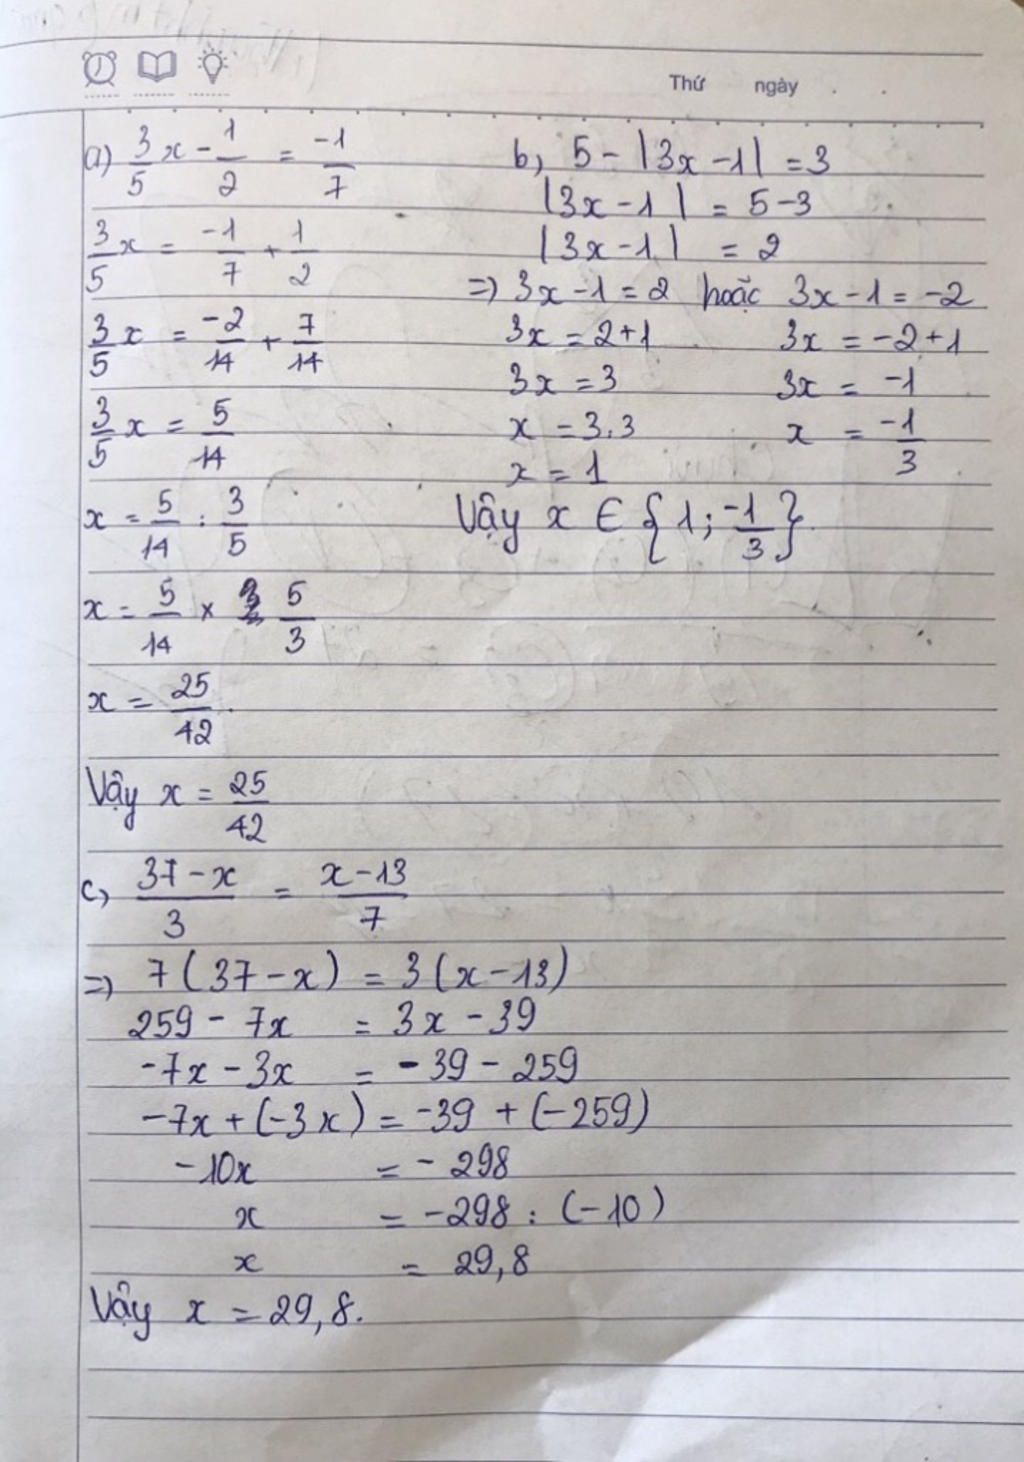 Thứ ngày
a) 3/5 x - 1/2 = -1/7
3/5 x = -1/7 + 1/2
3/5 x = -2/14 + 7/14
3/5 x = 5/14
x = 5/14 : 3/5
x = 5/14 × 5/3
x = 25/42.
Vậy x = 25/42
b, 5 - |3x - 1| = 3
|3x - 1| = 5 - 3
|3x - 1| = 2
=> 3x - 1 = 2 hoặc 3x - 1 = -2
3x = 2+1 3x = -2+1
3x = 3 3x = -1
x = 3:3 x = -1/3
x = 1
Vậy x ∈ {1; -1/3}.
c, 37 - x/3 = x - 13/7
=> 7(37 - x) = 3(x - 13)
259 - 7x = 3x - 39
-7x - 3x = -39 - 259
-7x + (-3x) = -39 + (-259)
-10x = -298
x = -298 : (-10)
x = 29,8
Vậy x = 29,8.